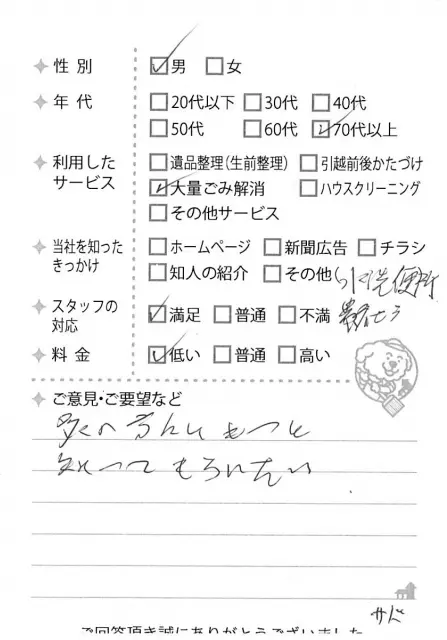 性別 ☑男 □女
年代 □20代以下 □30代 □40代
□50代 □60代 ☑70代以上
利用したサービス □遺品整理(生前整理) □引越前後かたづけ
☑大量ごみ解消 □ハウスクリーニング
□その他サービス
当社を知ったきっかけ □ホームページ □新聞広告 □チラシ
□知人の紹介 □その他(
スタッフの対応 ☑満足 □普通 □不満
料金 ☑低い □普通 □高い
ご意見・ご要望など
多くの方々にもっと
知ってもらいたい
ご回答頂き誠にありがとうございました